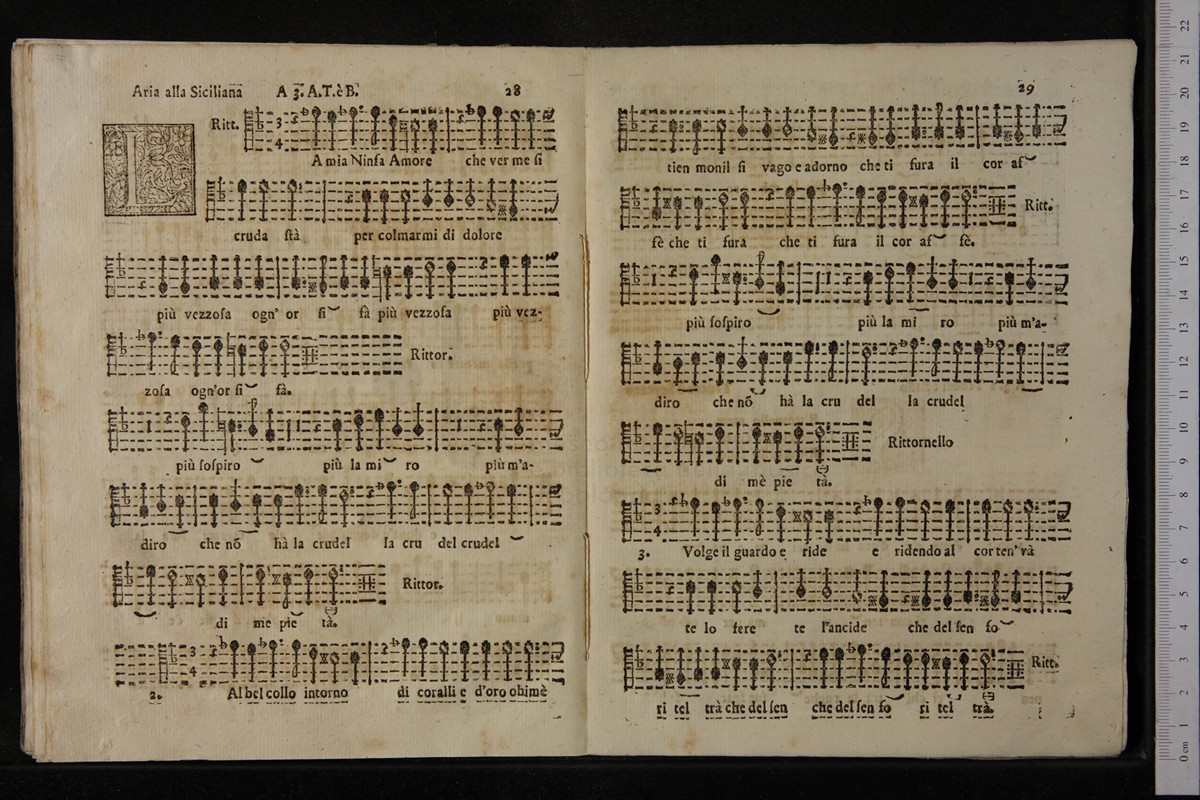 Aria alla Siciliana A 3. A.T.è B. 28
Ritt.
LA mia Ninfa Amore che ver me ſi
cruda ſtà per colmarmi di dolore
più vezzoſa ogn' or ſi fà più vezzoſa più vez-
zoſa ogn'or ſi fà. Rittor.
più ſoſpiro più la mi ro più m'a-
diro che nō hà la crudel la cru del crudel
di me pie tà. Rittor.
2. Al bel collo intorno di coralli e d'oro ohimè
29
tien monil ſi vago e adorno che ti fura il cor af
fè che ti fura che ti fura il cor af fè. Ritt.
più ſoſpiro più la mi ro più m'a-
diro che nō hà la cru del la crudel
di mè pie tà. Rittornello
3. Volge il guardo e ride e ridendo al cor ten' và
te lo fere te l'ancide che del ſen ſo
ri tel trà che del ſen che del ſen ſo ri tel trà. Ritt.
22
21
20
19
18
17
16
15
14
13
12
11
10
9
8
7
6
5
4
3
2
1
0 cm